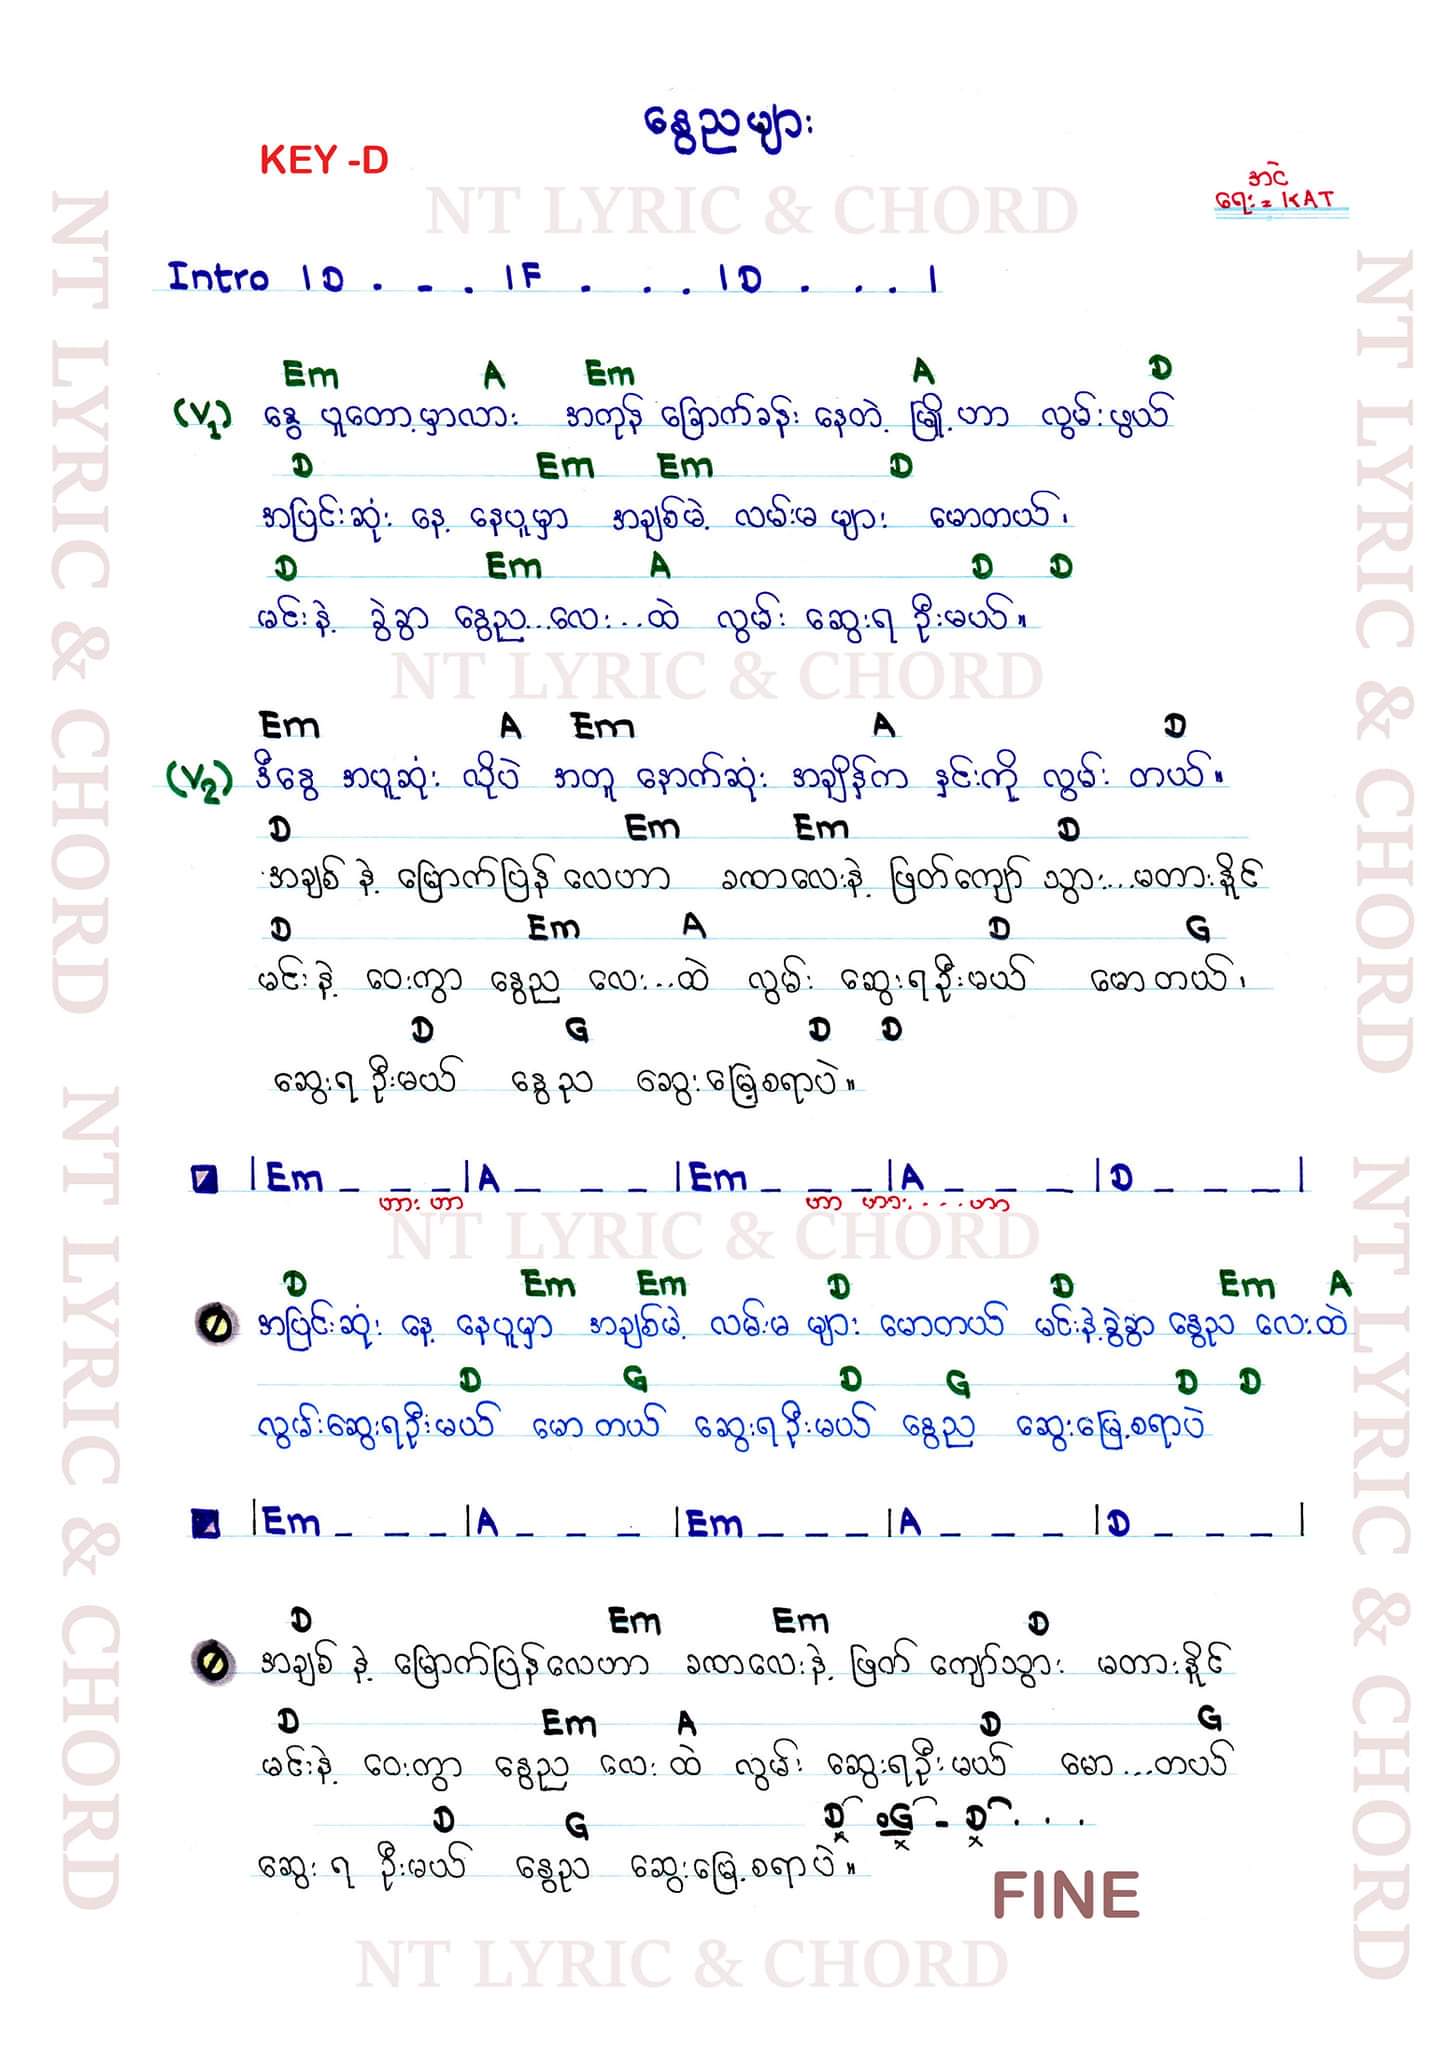 နွေညများ
KEY -D
အငဲ
ရေး = KAT
NT LYRIC & CHORD
Intro | D . - . | F . . . | D . . . |
Em A Em A D
(V1) နွေ ပူတော့မှာလား အကုန် ခြောက်ခန်း နေတဲ့ မြို့ဟာ လွမ်းဖွယ်
D Em Em D
အပြင်းဆုံး နေ့ နေပူမှာ အချစ်မဲ့ လမ်းမ များ မောတယ်၊
D Em A D D
မင်းနဲ့ ခွဲခွာ နွေည...လေး...ထဲ လွမ်း ဆွေးရ ဦးမယ်။
NT LYRIC & CHORD
Em A Em A D
(V2) ဒီနွေ အပူဆုံး လိုပဲ အတူ နောက်ဆုံး အချိန်က နှင်းကို လွမ်း တယ်။
D Em Em D
အချစ် နဲ့ မြောက်ပြန် လေဟာ ခဏလေးနဲ့ ဖြတ်ကျော် သွား...မတားနိုင်
D Em A D G
မင်းနဲ့ ဝေးကွာ နွေည လေး...ထဲ လွမ်း ဆွေးရဦးမယ် မောတယ်၊
D G D D
ဆွေးရ ဦးမယ် နွေည ဆွေးမြေ့စရာပဲ။
| Em _ _ _ | A _ _ _ | Em _ _ _ | A _ _ _ | D _ _ _ |
ဟား ဟာ ဟာ ဟား....ဟာ
NT LYRIC & CHORD
D Em Em D D Em A
အပြင်းဆုံး နေ့ နေပူမှာ အချစ်မဲ့ လမ်းမ များ မောတယ် မင်းနဲ့ခွဲခွာ နွေည လေးထဲ
D G D G D D
လွမ်းဆွေးရဦးမယ် မောတယ် ဆွေးရဦးမယ် နွေည ဆွေးမြေ့စရာပဲ
| Em _ _ _ | A _ _ _ | Em _ _ _ | A _ _ _ | D _ _ _ |
D Em Em D
အချစ် နဲ့ မြောက်ပြန်လေဟာ ခဏလေးနဲ့ ဖြတ် ကျော်သွား မတားနိုင်
D Em A D G
မင်းနဲ့ ဝေးကွာ နွေည လေး ထဲ လွမ်း ဆွေးရဦးမယ် မော...တယ်
D G D G - D . . .
ဆွေး ရ ဦးမယ် နွေည ဆွေးမြေ့စရာပဲ။
FINE
NT LYRIC & CHORD
NT LYRIC & CHORD
NT LYRIC & CHORD
NT LYRIC & CHORD
NT LYRIC & CHORD